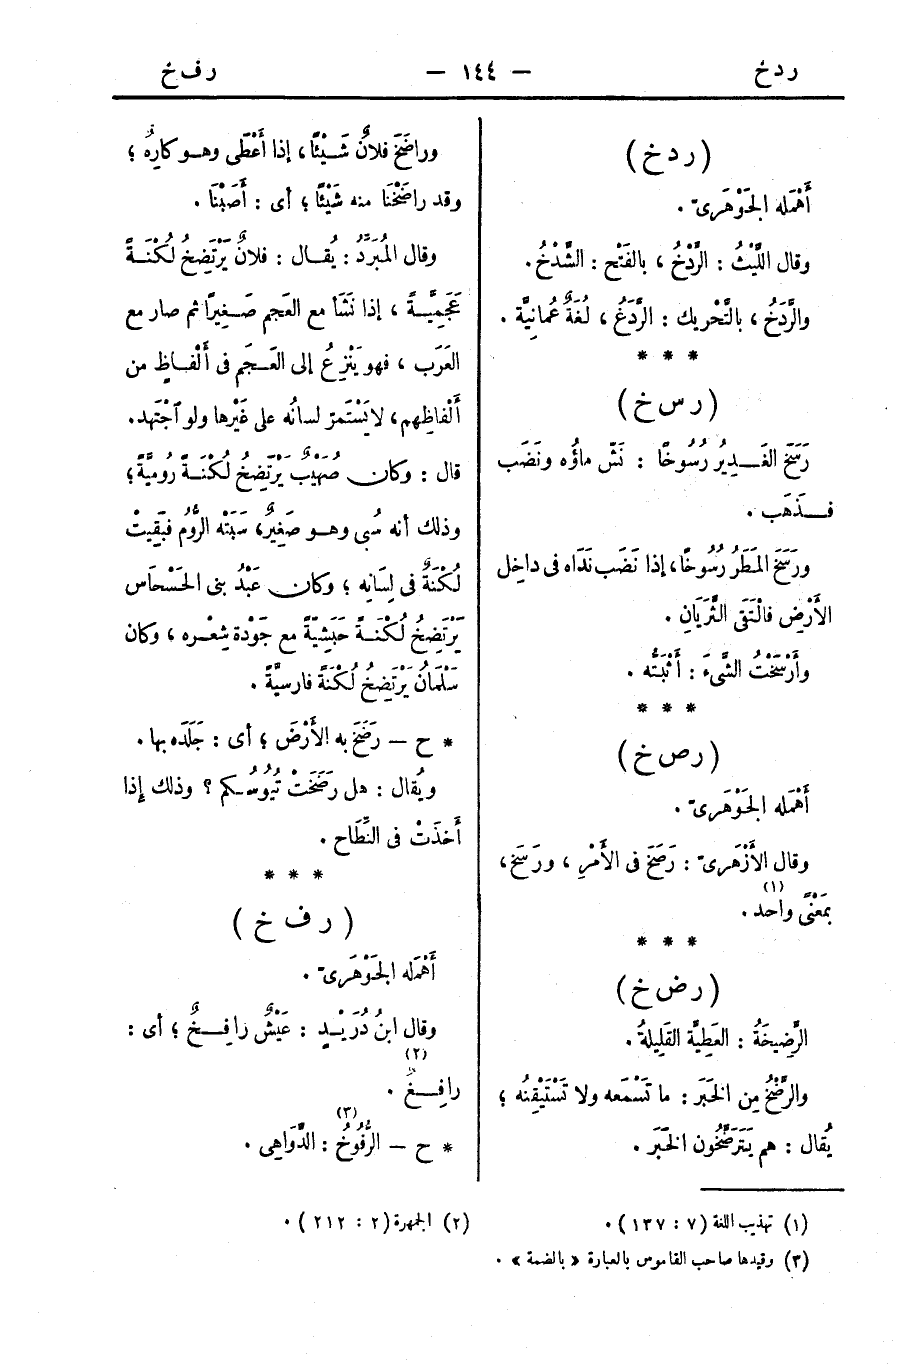 ردخ — ١٤٤ — رفخ
( ردخ )
أَهْمَله الجَوْهَرىّ .
وقال اللَّيْثُ : الرَّدْخُ ، بالفَتْح : الشَّدْخُ .
والرَّدَخُ ، بالتَّحْريك : الرَّدَغُ ، لُغَةٌ عُمانِيَّة .
* * *
( رسخ )
رَسَخَ الغَدِيرُ رُسُوخًا : نَشّ ماؤُه ونَضَب
فذَهَب .
ورَسَخَ المَطَرُ رُسُوخًا ، إذا نَضَب نَدَاه فى داخِل
الأَرْضِ فالْتَقَى الثَّرَيَانِ .
وأَرْسَخْتُ الشَّىءَ : أَثْبَتُّه .
* * *
( رصخ )
أَهْمَله الجَوْهَرىّ .
وقال الأَزْهَرىّ : رَصَخَ فى الأَمْرِ ، ورَسَخَ ،
بمَعْنًى واحد (١) .
* * *
( رضخ )
الرَّضِيخَةُ : العَطِيَّة القَلِيلةُ .
والرَّضْخُ مِن الخَبَر : ما تَسْمَعه ولا تَسْتَيْقِنُه ؛
يُقال : هم يَتَرَضَّخُون الخَبَرَ .
وراضَخَ فلانٌ شَيْئًا ، إذا أَعْطَى وهو كارِهٌ ؛
وقد راضَخْنَا منه شَيْئًا ؛ أى : أَصَبْنَا .
وقال المُبَرَّدُ : يُقال : فلانٌ يَرْتَضِخُ لُكْنَةً
عَجَمِيَّةً ، إذا نَشَأ مع العَجم صَغِيرًا ثم صار مع
العَرَب ، فهو يَنْزِعُ إلى العَجَم فى أَلْفاظٍ من
أَلْفاظِهم ، لا يَسْتَمرّ لسانُه على غَيْرها ولو اجْتهد .
قال : وكان صُهَيْبٌ يَرْتَضِخُ لُكْنَةً رُوميَّةً ؛
وذلك أنه سُبى وهو صَغِيرٌ ، سَبَتْه الرُّوم فَبَقِيتْ
لُكْنَةٌ فى لِسَانِه ؛ وكان عَبْدُ بنى الحَسْحَاس
يَرْتَضِخُ لُكْنَةً حَبَشِيّةً مع جَوْدة شِعْره ، وكان
سَلْمَانُ يَرْتَضِخُ لُكْنَةً فارسيَّةً .
* ح — رَضَخَ به الأَرْضَ ؛ أى : جَلَدَه بها .
ويُقال : هل رَضَخَتْ تُيُوسُكم ؟ وذلك إذا
أَخذَتْ فى النِّطَاح .
* * *
( رفخ )
أَهْمَله الجَوْهَرىّ .
وقال ابنُ دُرَيْدٍ : عَيْشٌ رافِخٌ ؛ أى :
رافِغٌ (٢) .
* ح — الرُّفُوخُ (٣) : الدَّوَاهِى .
(١) تهذيب اللغة (٧ : ١٣٧) .
(٢) الجمهرة (٢ : ٢١٢) .
(٣) وقيدها صاحب القاموس بالعبارة « بالضمة » .